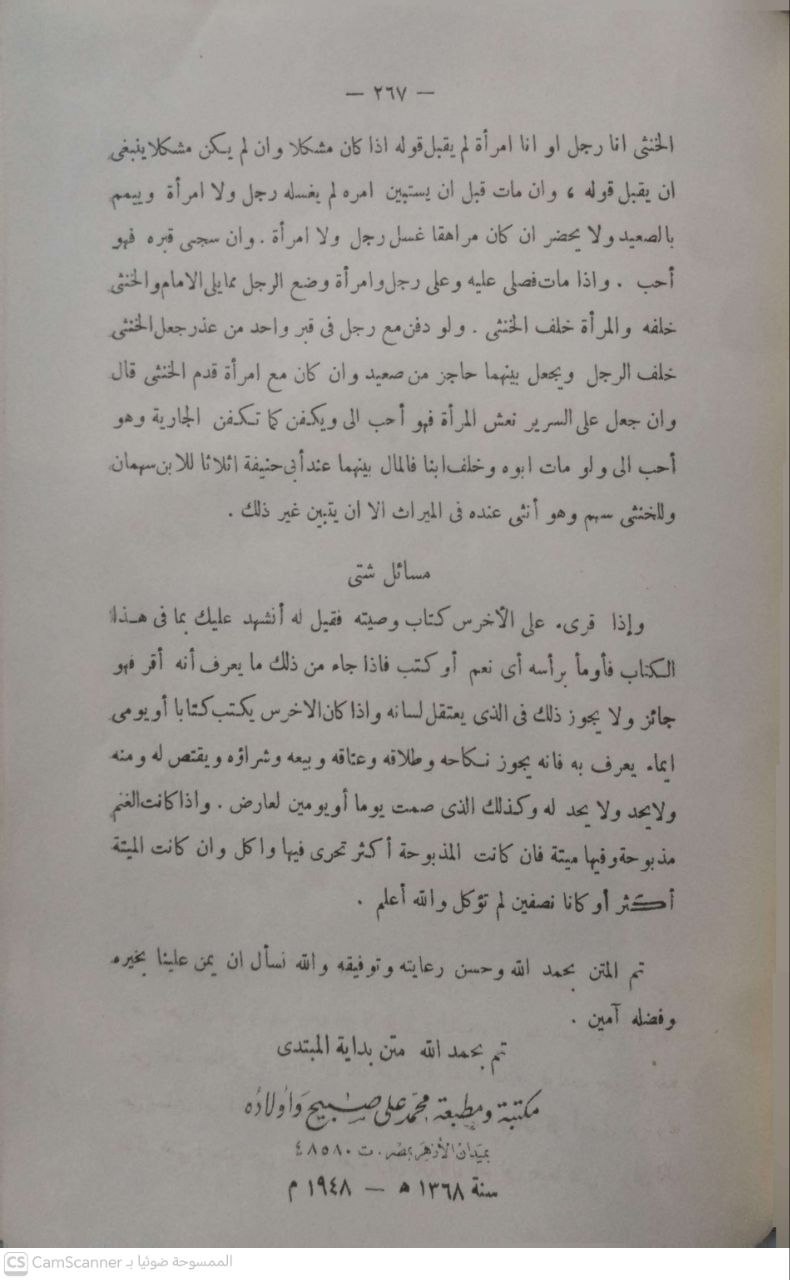 — ٢٦٧ —
الخنثى انا رجل او انا امرأة لم يقبل قوله اذا كان مشكلا وان لم يكن مشكلا ينبغى
ان يقبل قوله ، وان مات قبل ان يستبين امره لم يغسله رجل ولا امرأة وييمم
بالصعيد ولا يحضر ان كان مراهقا غسل رجل ولا امرأة . وان سجى قبره فهو
أحب . واذا مات فصلى عليه وعلى رجل وامرأة وضع الرجل ممايلى الامام والخنثى
خلفه والمرأة خلف الخنثى . ولو دفن مع رجل فى قبر واحد من عذر جعل الخنثى
خلف الرجل ويجعل بينهما حاجز من صعيد وان كان مع امرأة قدم الخنثى قال
وان جعل على السرير نعش المرأة فهو أحب الى ويكفن كما تكفن الجارية وهو
أحب الى ولو مات ابوه وخلف ابنا فالمال بينهما عند أبى حنيفة اثلاثا للابن سهمان
وللخنثى سهم وهو أنثى عنده فى الميراث الا ان يتبين غير ذلك .
مسائل شتى
وإذا قرىء على الأخرس كتاب وصيته فقيل له أنشهد عليك بما فى هذا
الكتاب فأومأ برأسه أى نعم أو كتب فاذا جاء من ذلك ما يعرف أنه أقر فهو
جائز ولا يجوز ذلك فى الذى يعتقل لسانه واذا كان الاخرس يكتب كتابا أو يومى
ايماء يعرف به فانه يجوز نكاحه وطلاقه وعتاقه وبيعه وشراؤه ويقتص له ومنه
ولايحد ولا يحد له وكذلك الذى صمت يوما أو يومين لعارض . واذا كانت الغنم
مذبوحة وفيها ميتة فان كانت المذبوحة أكثر تحرى فيها واكل وان كانت الميتة
أكثر أو كانا نصفين لم تؤكل والله أعلم .
تم المتن بحمد الله وحسن رعايته وتوفيقه والله نسأل ان يمن علينا بخيره
وفضله آمين .
تم بحمد الله متن بداية المبتدى
مكتبة ومطبعة محمد على صبيح وأولاده
بميدان الأزهر بمصر . ت ٤٨٥٨٠
سنة ١٣٦٨ ه — ١٩٤٨ م
CS CamScanner الممسوحة ضوئيا بـ